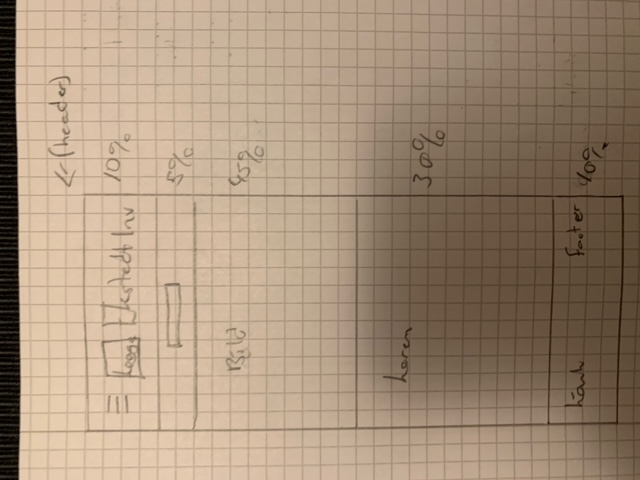 <- (header)
Logga Ekstedt Inv 10%
5%
Bild 45%
Loren 30%
länk footer 40%